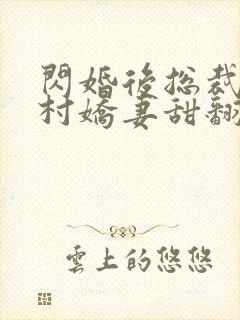 閃婚後總裁
村嬌妻甜翻
雲上的悠悠